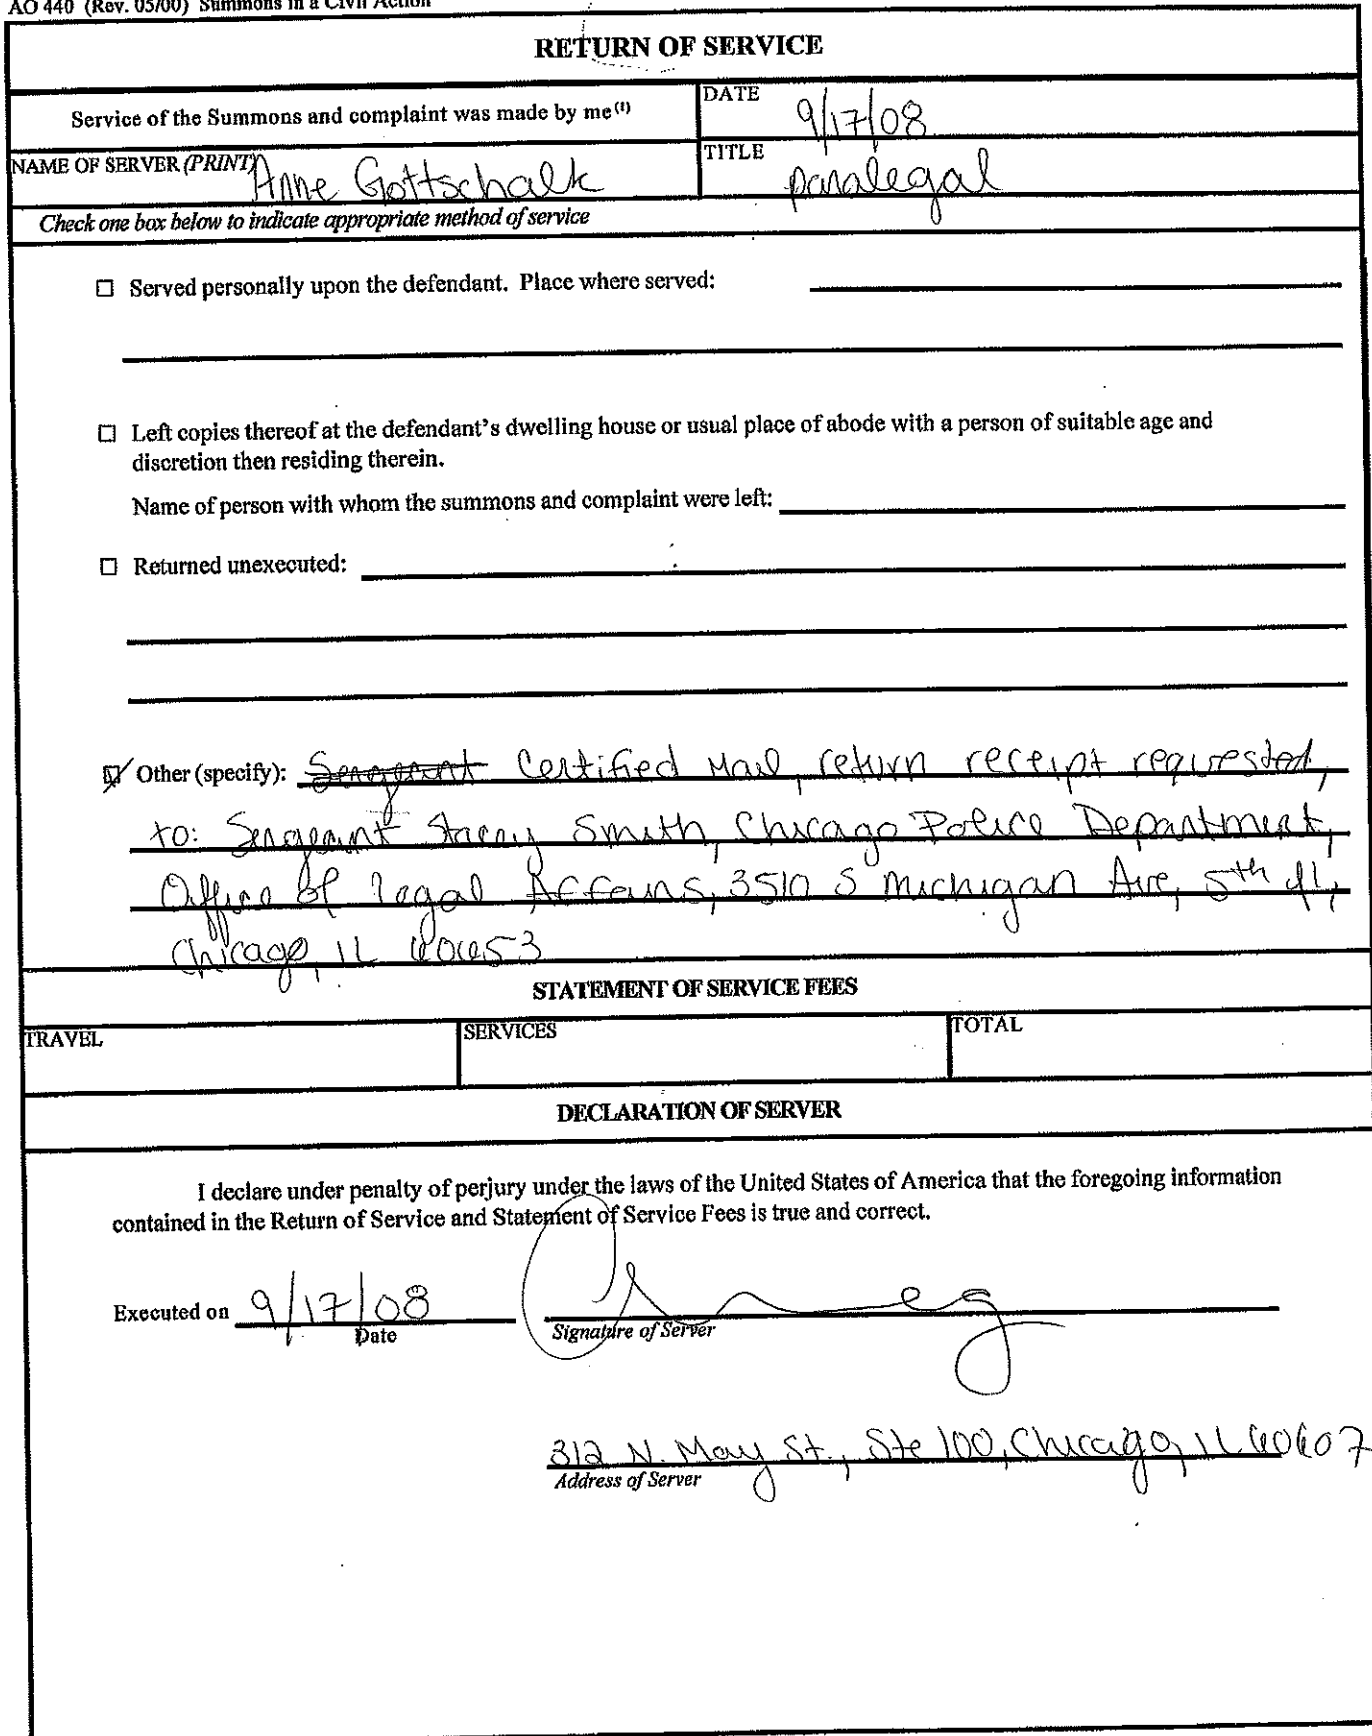 AO 440 (Rev. 05/00) Summons in a Civil Action
RETURN OF SERVICE
Service of the Summons and complaint was made by me(1)
DATE
9/17/08
NAME OF SERVER (PRINT)
Anne Gottschalk
TITLE
paralegal
Check one box below to indicate appropriate method of service
☐ Served personally upon the defendant. Place where served:
☐ Left copies thereof at the defendant's dwelling house or usual place of abode with a person of suitable age and
discretion then residing therein.
Name of person with whom the summons and complaint were left:
☐ Returned unexecuted:
☑ Other (specify): Sergeant Certified Mail, return receipt requested,
to: Sergeant Stacey Smith, Chicago Police Department,
Office of Legal Affairs, 3510 S Michigan Ave, 5th fl,
Chicago, IL 60653
STATEMENT OF SERVICE FEES
TRAVEL
SERVICES
TOTAL
DECLARATION OF SERVER
I declare under penalty of perjury under the laws of the United States of America that the foregoing information
contained in the Return of Service and Statement of Service Fees is true and correct.
Executed on 9/17/08
Date
Signature of Server
312 N. May St., Ste 100, Chicago, IL 60607
Address of Server